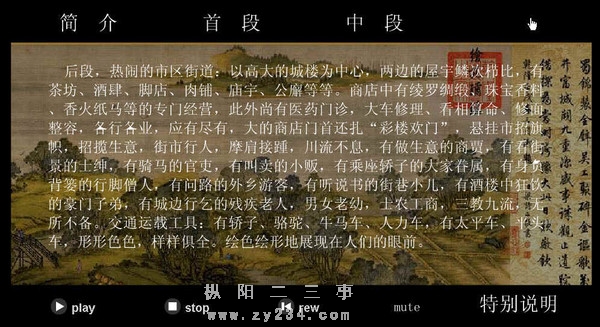 简 介
首 段
中 段
后段，热闹的市区街道：以高大的城楼为中心，两边的屋宇鳞次栉比，有
茶坊、酒肆、脚店、肉铺、庙宇、公廨等等。商店中有绫罗绸缎、珠宝香料、
香火纸马等的专门经营，此外尚有医药门诊，大车修理、看相算命、修面
整容，各行各业，应有尽有，大的商店门首还扎“彩楼欢门”，悬挂市招旗
帜，招揽生意，街市行人，摩肩接踵，川流不息，有做生意的商贾，有看街
景的士绅，有骑马的官吏，有叫卖的小贩，有乘座轿子的大家眷属，有身负
背篓的行脚僧人，有问路的外乡游客，有听说书的街巷小儿，有酒楼中狂饮
的豪门子弟，有城边行乞的残疾老人，男女老幼，士农工商，三教九流，无
所不备。交通运载工具：有轿子、骆驼、牛马车、人力车，有太平车、平头
车，形形色色，样样俱全。绘色绘形地展现在人们的眼前。
play
stop
rew
mute
特别说明
枞阳二三事
www.zy234.com